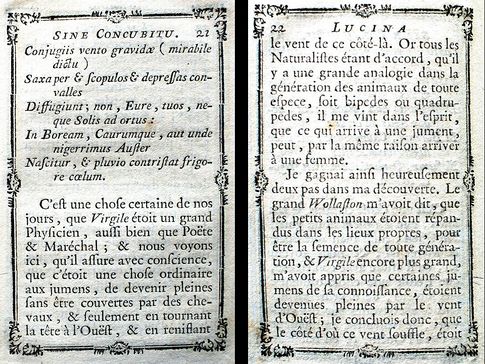 SINE CONCUBITU. 21
Conjugiis vento gravidæ ( mirabile
dictu )
Saxa per & scopulos & depressas con-
valles
Diffugiunt; non, Eure, tuos, ne-
que Solis ad ortus :
In Boream, Caurumque, aut unde
nigerrimus Auster
Nascitur, & pluvio contristat frigo-
re cœlum.
C'est une chose certaine de nos
jours, que Virgile étoit un grand
Physicien, aussi bien que Poëte
& Maréchal ; & nous voyons
ici, qu'il assure avec conscience,
que c'étoit une chose ordinaire
aux jumens, de devenir pleines
sans être couvertes par des che-
vaux, & seulement en tournant
la tête à l'Ouëst, & en reniflant
22 LUCINA
le vent de ce côté-là. Or tous les
Naturalistes étant d'accord, qu'il
y a une grande analogie dans la
génération des animaux de toute
espece, soit bipedes ou quadru-
pédes, il me vint dans l'esprit,
que ce qui arrive à une jument,
peut, par la même raison arriver
à une femme.
Je gagnai ainsi heureusement
deux pas dans ma découverte. Le
grand Wollaston m'avoit dit, que
les petits animaux étoient répan-
dus dans les lieux propres, pour
être la semence de toute généra-
tion, & Virgile encore plus grand,
m'avoit appris que certaines ju-
mens de sa connoissance, étoient
devenues pleines par le vent
d'Ouëst ; je conclus donc, que
le côté d'où ce vent souffle, étoit